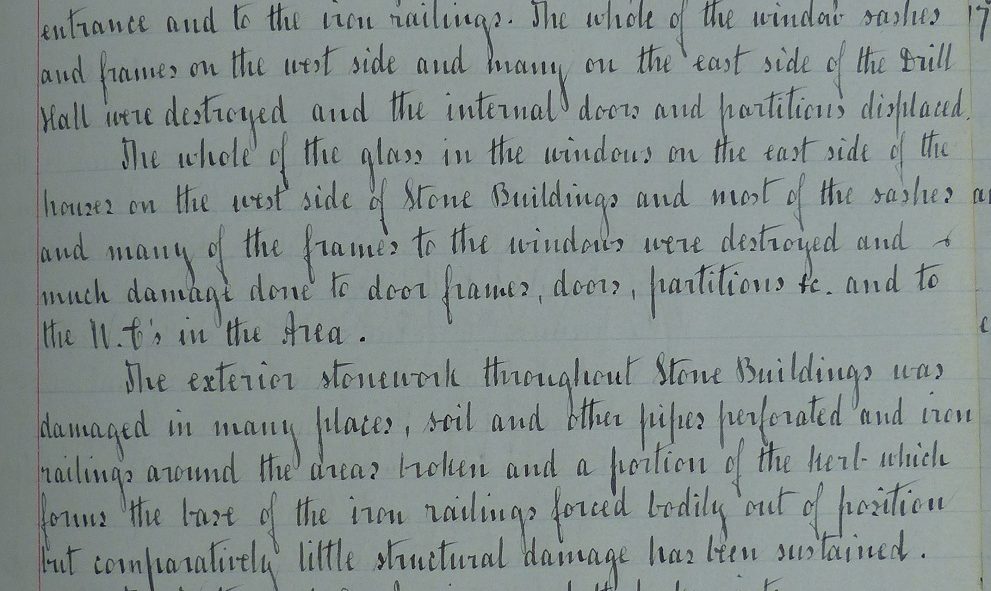 entrance and to the iron railings. The whole of the window sashes
and frames on the west side and many on the east side of the Drill
Hall were destroyed and the internal doors and partitions displaced.
The whole of the glass in the windows on the east side of the
houses on the west side of Stone Buildings and most of the sashes
and many of the frames to the windows were destroyed and
much damage done to door frames, doors, partitions &c. and to
the W.C's in the Area.
The exterior stonework throughout Stone Buildings was
damaged in many places, soil and other pipes perforated and iron
railings around the areas broken and a portion of the kerb which
forms the base of the iron railings forced bodily out of position
but comparatively little structural damage has been sustained.